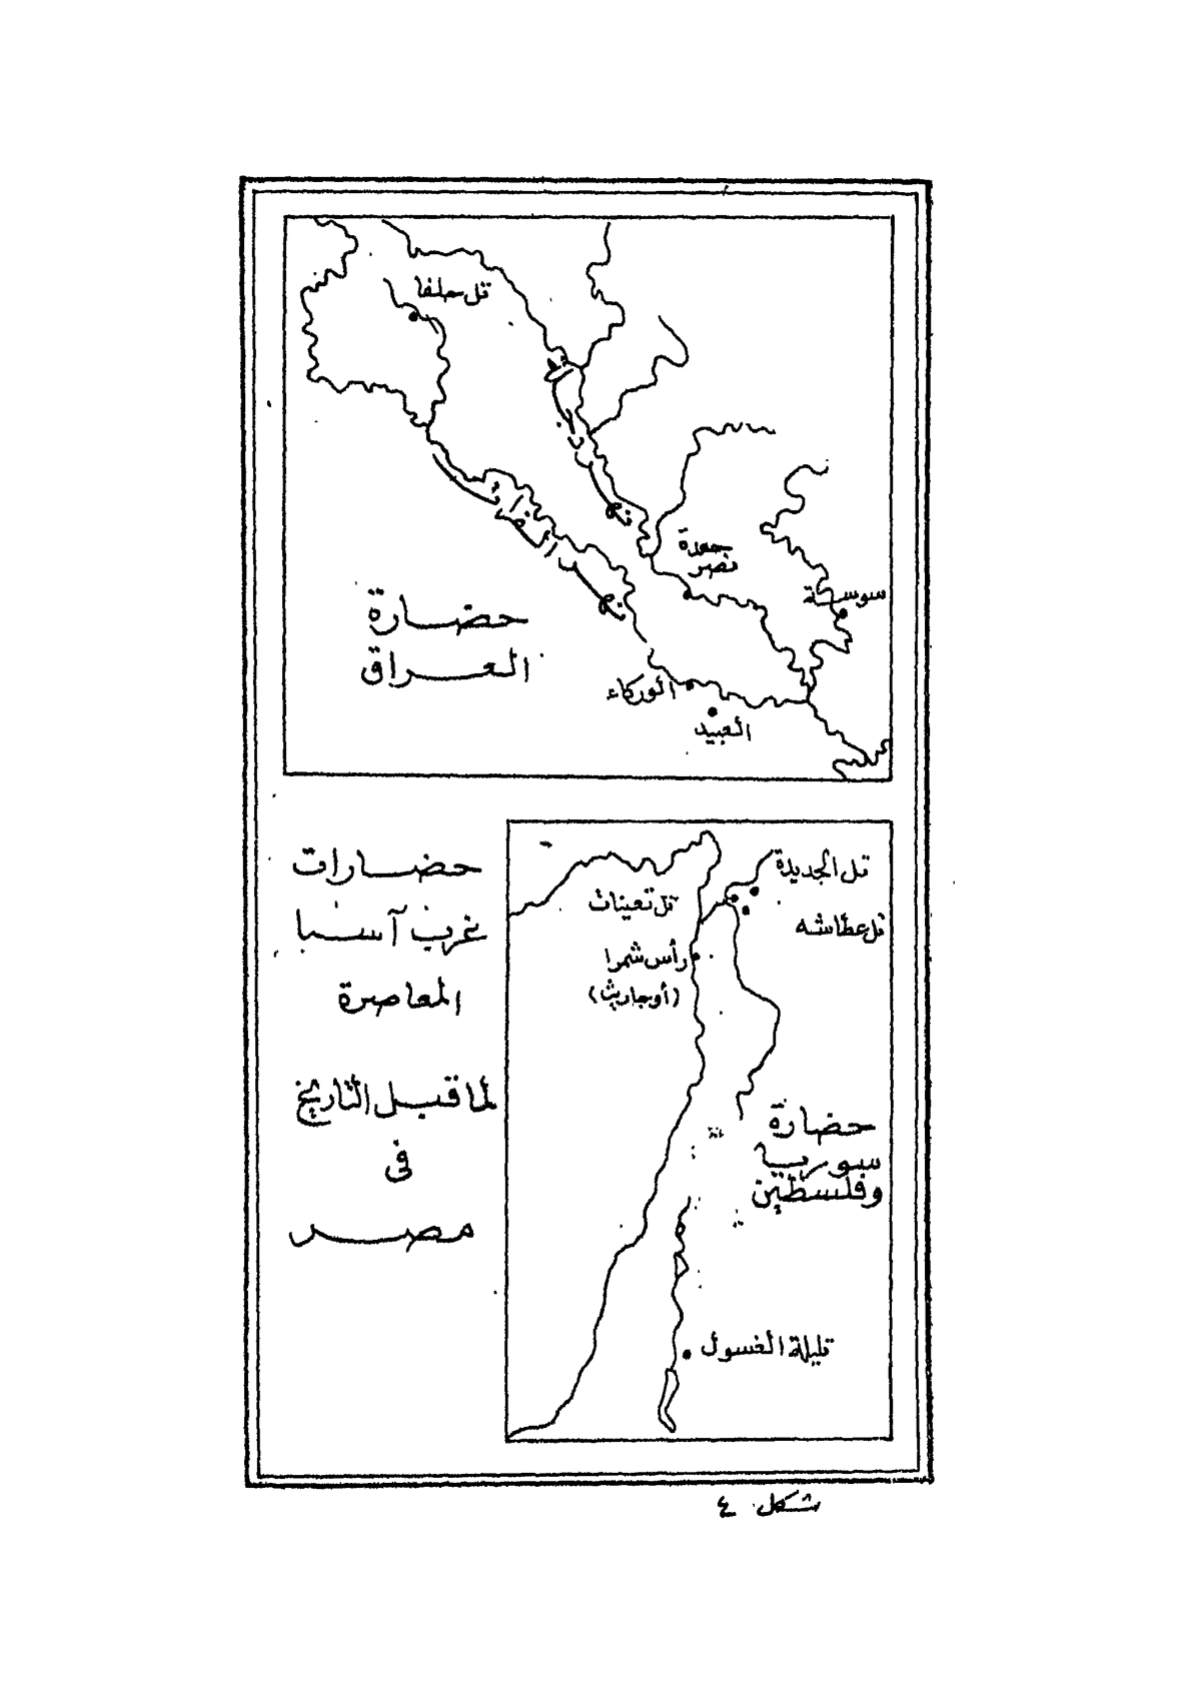 تل حلفا
نهر دجلة
نهر الفرات
جمدة
نصر
سوسة
حضارة
العراق
الوركاء
العبيد
حضارات
غرب آسيا
المعاصرة
لما قبل التاريخ
فى
مصر
تل الجديدة
تل تعينات
تل عطاشه
رأس شمرا
(أوجاريث)
حضارة
سوريا
وفلسطين
تليلة الغسول
شكل ٤